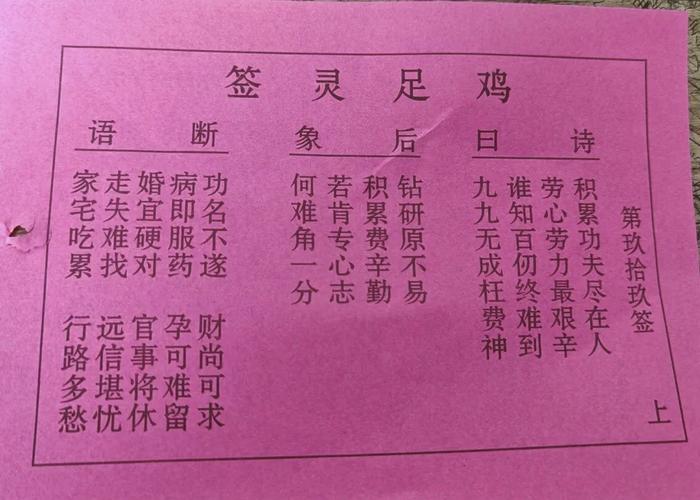 鸡足灵签
第玖拾玖签
上
诗曰
积累功夫尽在人
劳心劳力最艰辛
谁知百仞终难到
九九无成枉费神
后象
钻研原不易
积累费辛勤
若肯专心志
何难角一分
断语
功名不遂
财尚可求
病即服药
孕可难留
婚宜硬对
官事将休
走失难找
远信堪忧
家宅吃累
行路多愁